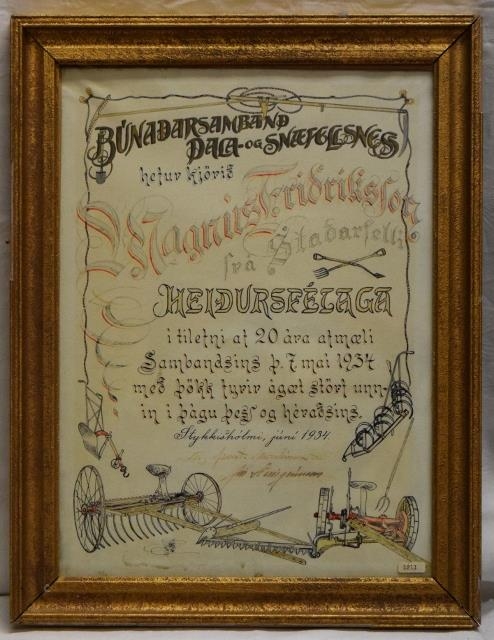 BÚNAÐARSAMBAND
DALA- OG SNÆFELLSNES
hefur kjörið
Magnús Friðriksson
frá Staðarfelli
HEIÐURSFÉLAGA
í tilefni af 20 ára afmæli
Sambandsins þ. 7 maí 1934
með þökk fyrir ágæt störf unn-
in í þágu þess og héraðsins.
Stykkishólmi, júní 1934